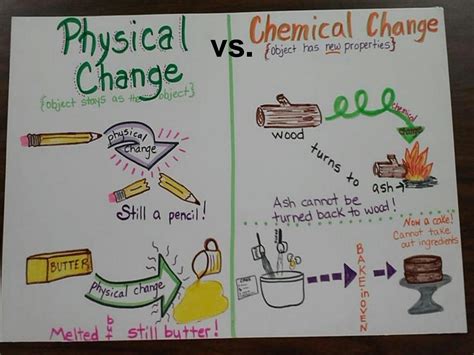 Physical
Change
{object stays as the object}
physical
change
Still a pencil!
BUTTER
physical change
Melted but still butter!
vs.
Chemical Change
{object has new properties}
wood
chemical
change
turns to
ash
Ash cannot be
turned back to wood!
Now a cake!
Cannot take
out ingredients
BAKE in OVEN